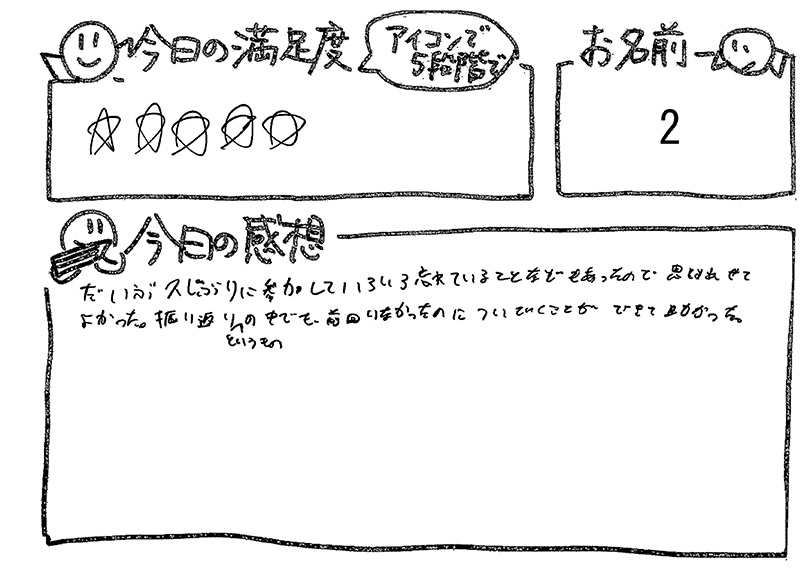 今日の満足度
アイコンで
5段階で
お名前
☆☆☆☆☆
2
今日の感想
だいぶ久しぶりに参加していろいろ忘れていることなどもあったので思い出せて
よかった。振り返りの中でも、前回いなかったのについていくことができて助かった。
というもの